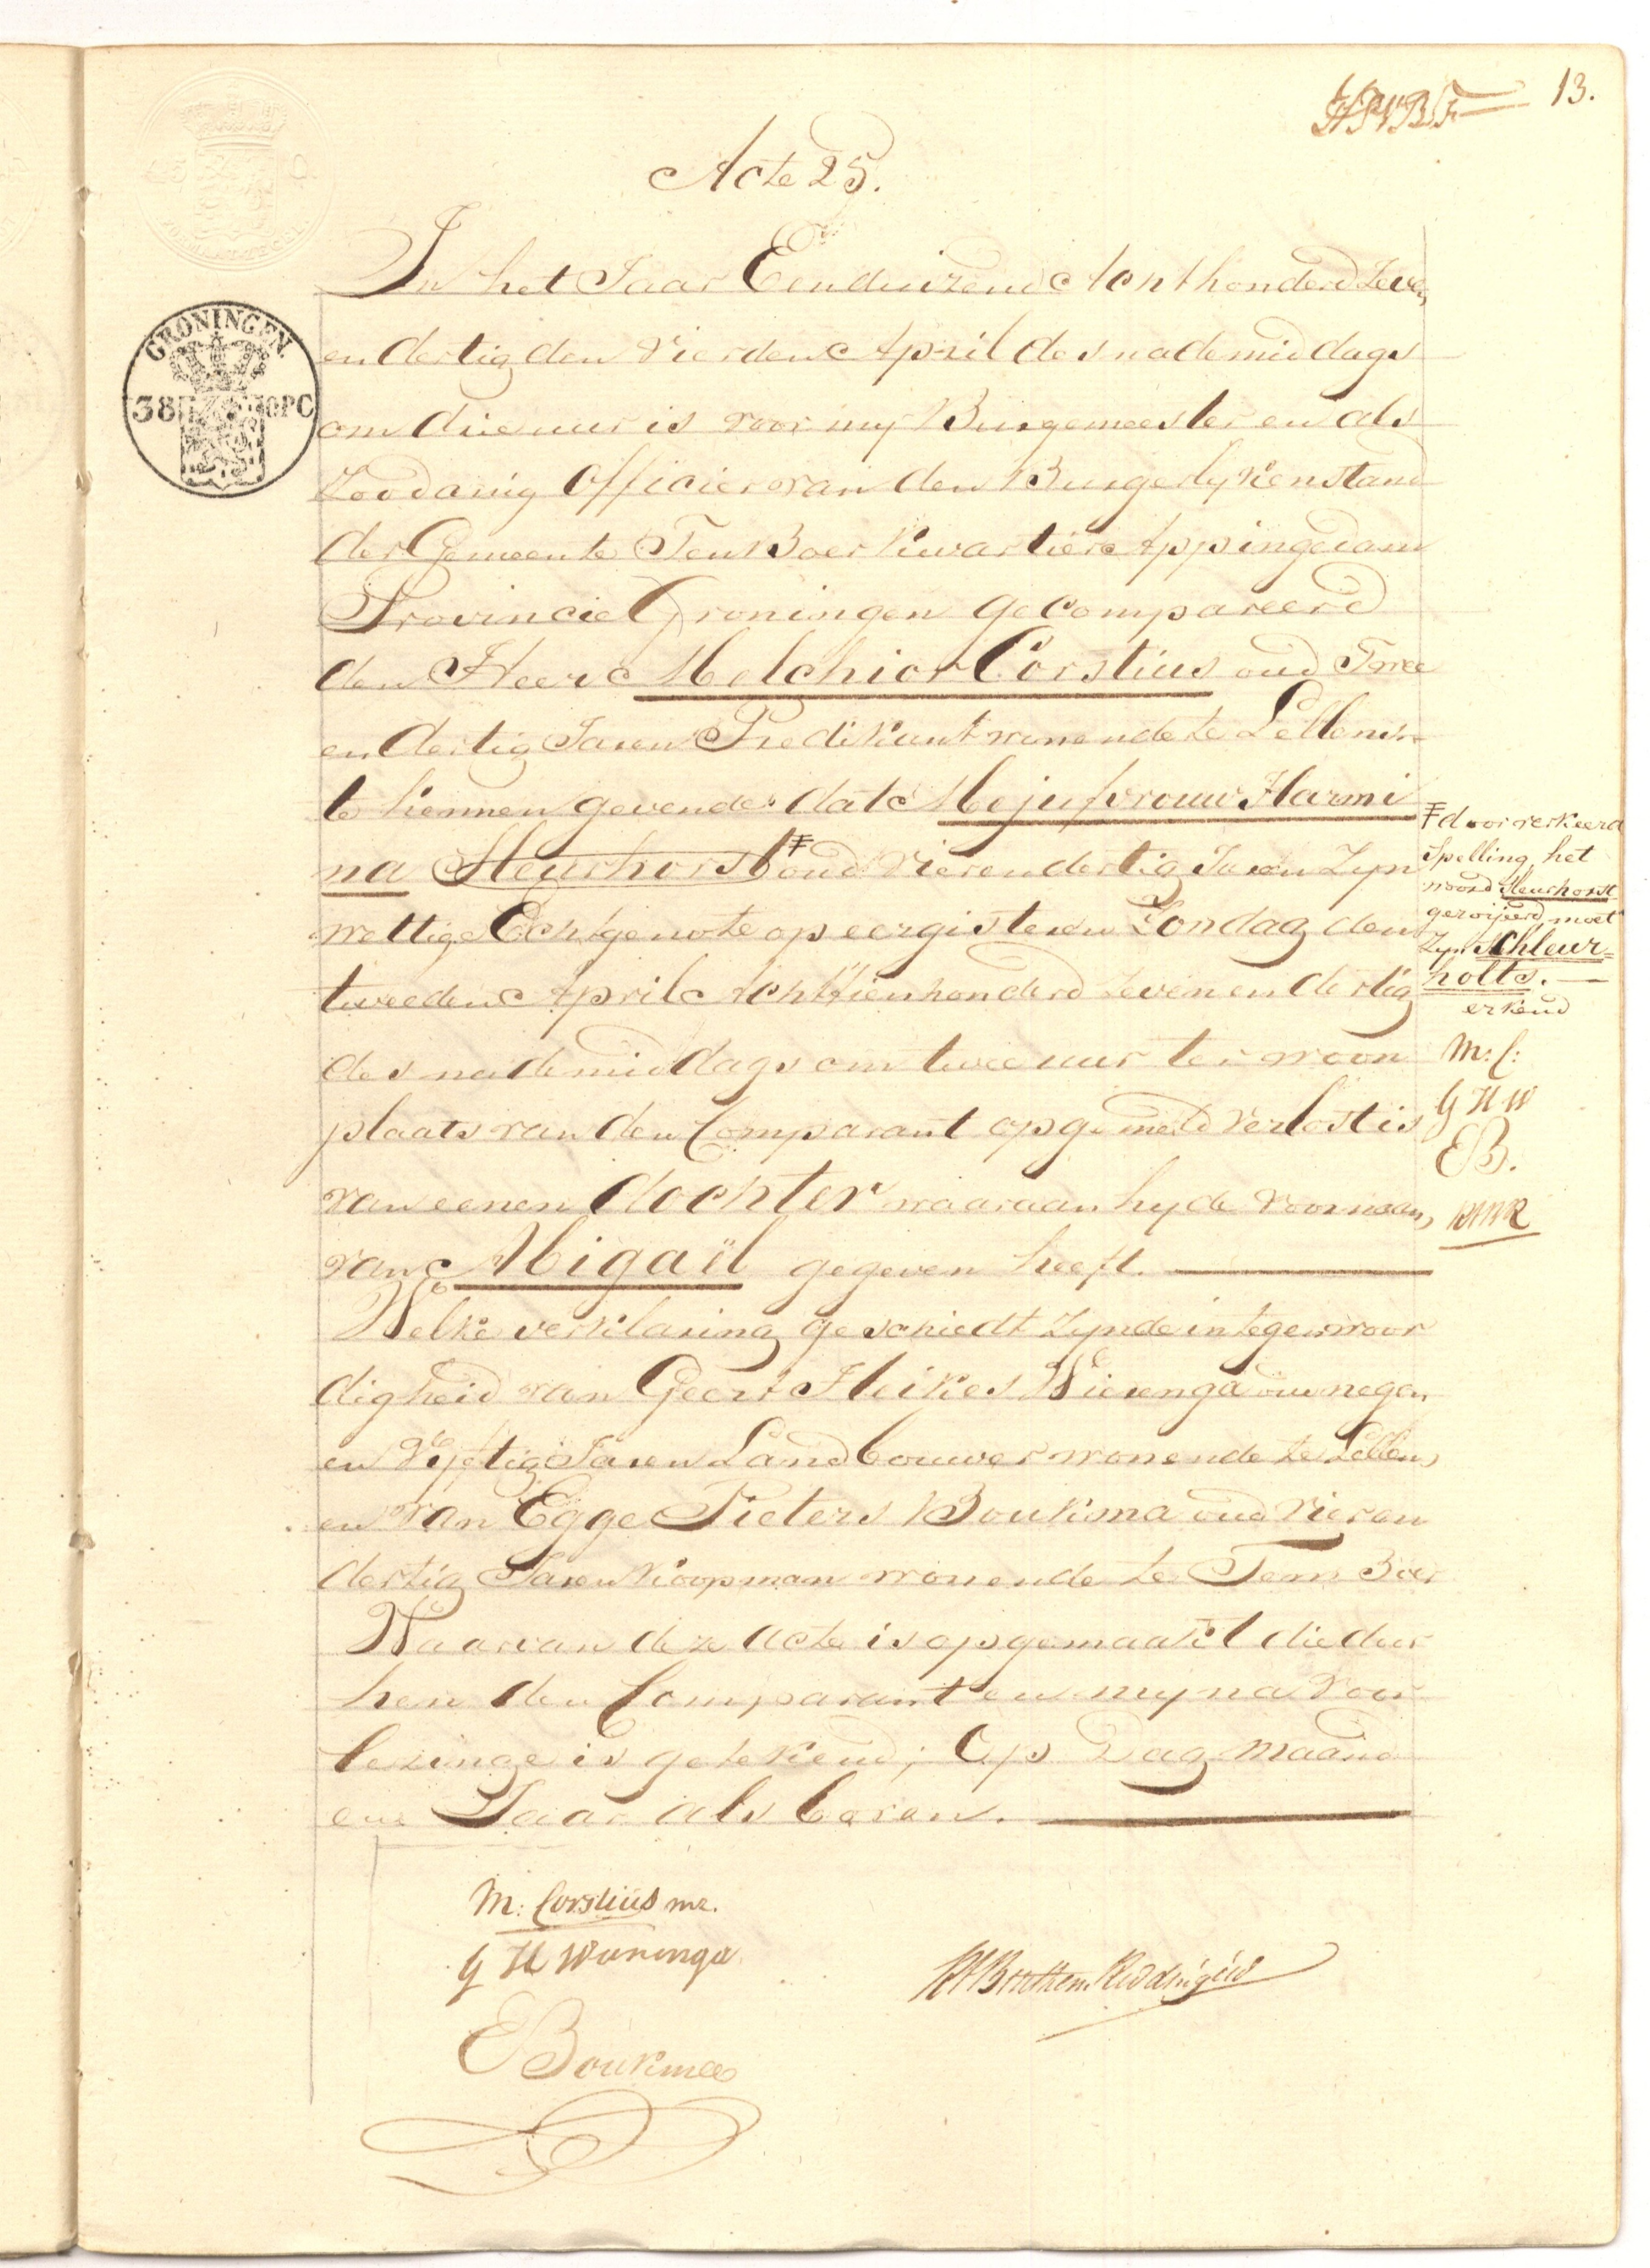 13.
Acte 25.
In het Jaar Eenduizend Achthonderd Zeven
en dertig den Vierden April des nademiddags
om drie uur is voor my Burgemeester en als
Zoodanig Officier van den Burgerlyken stand
der Gemeente Ten Boer Kwartier Appingedam
Provincie Groningen gecompareerd
den Heer Melchior Corstius oud Twee
en dertig Jaren Predikant wonende te Lellens
te kennen gevende dat Mejufvrouw Harmi
na Sleurhorst ₮ oud Vierendertig Jaren Zyn
wettige Echtgenote op eergisteren Zondag den
tweeden April Achttienhonderd Zevenendertig
des nademiddags om twee uur ter woon
plaats van den Comparant opgemeld verlost is
van eenen dochter waaraan hy de Voornaam
van Abigaël gegeven heeft.
Welke verklaring geschiedt Zynde in tegenwoor
digheid van Geert Heikes Wierenga oud negen
en Vyftig Jaren Landbouwer wonende te Lellens
en van Egge Pieters Boukema oud Vier en
dertig Jaren Koopman wonende te Ten Boer
Waarvan deze acte is opgemaakt die door
hen den Comparant en my na Voor
lezinge is getekend; Op Dag maand
en Jaar als boven.
₮ door verkeerd
Spelling, het
woord Sleurhorst
geroijeerd, moet
Zyn Schleur=
holts.
erkend
M: C:
G H W
EB.
GRONINGEN.
38 OPC
45 C.
FORMAATZEGEL
M: Corstius mr.
G H Wierenga
EBoukema